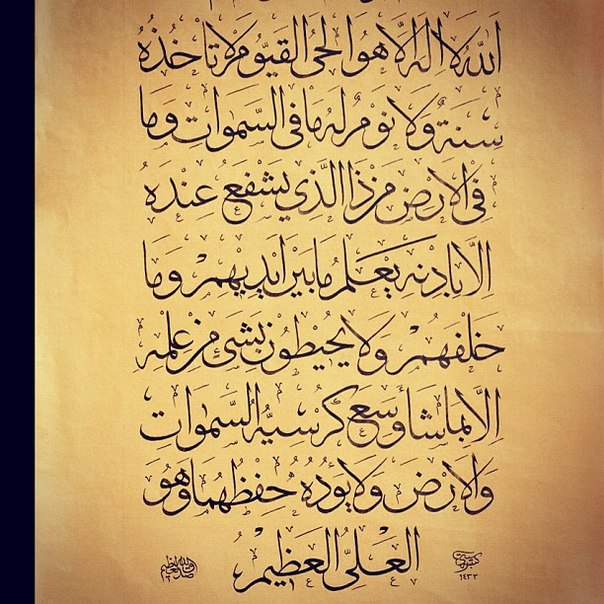 الله لا اله الا هو الحي القيوم لا تأخذه
سنة ولا نوم له ما في السموات وما
في الارض من ذا الذي يشفع عنده
الا باذنه يعلم ما بين ايديهم وما
خلفهم ولا يحيطون بشئ من علمه
الا بما شاء وسع كرسيه السموات
والارض ولا يؤده حفظهما وهو
العلي العظيم
صدق الله العظيم
١٤٣٣